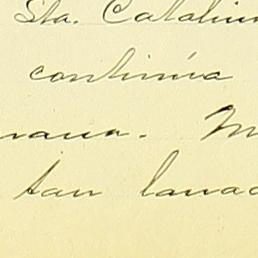 Sta. Catalin
continúa
nana. M
tan lanac